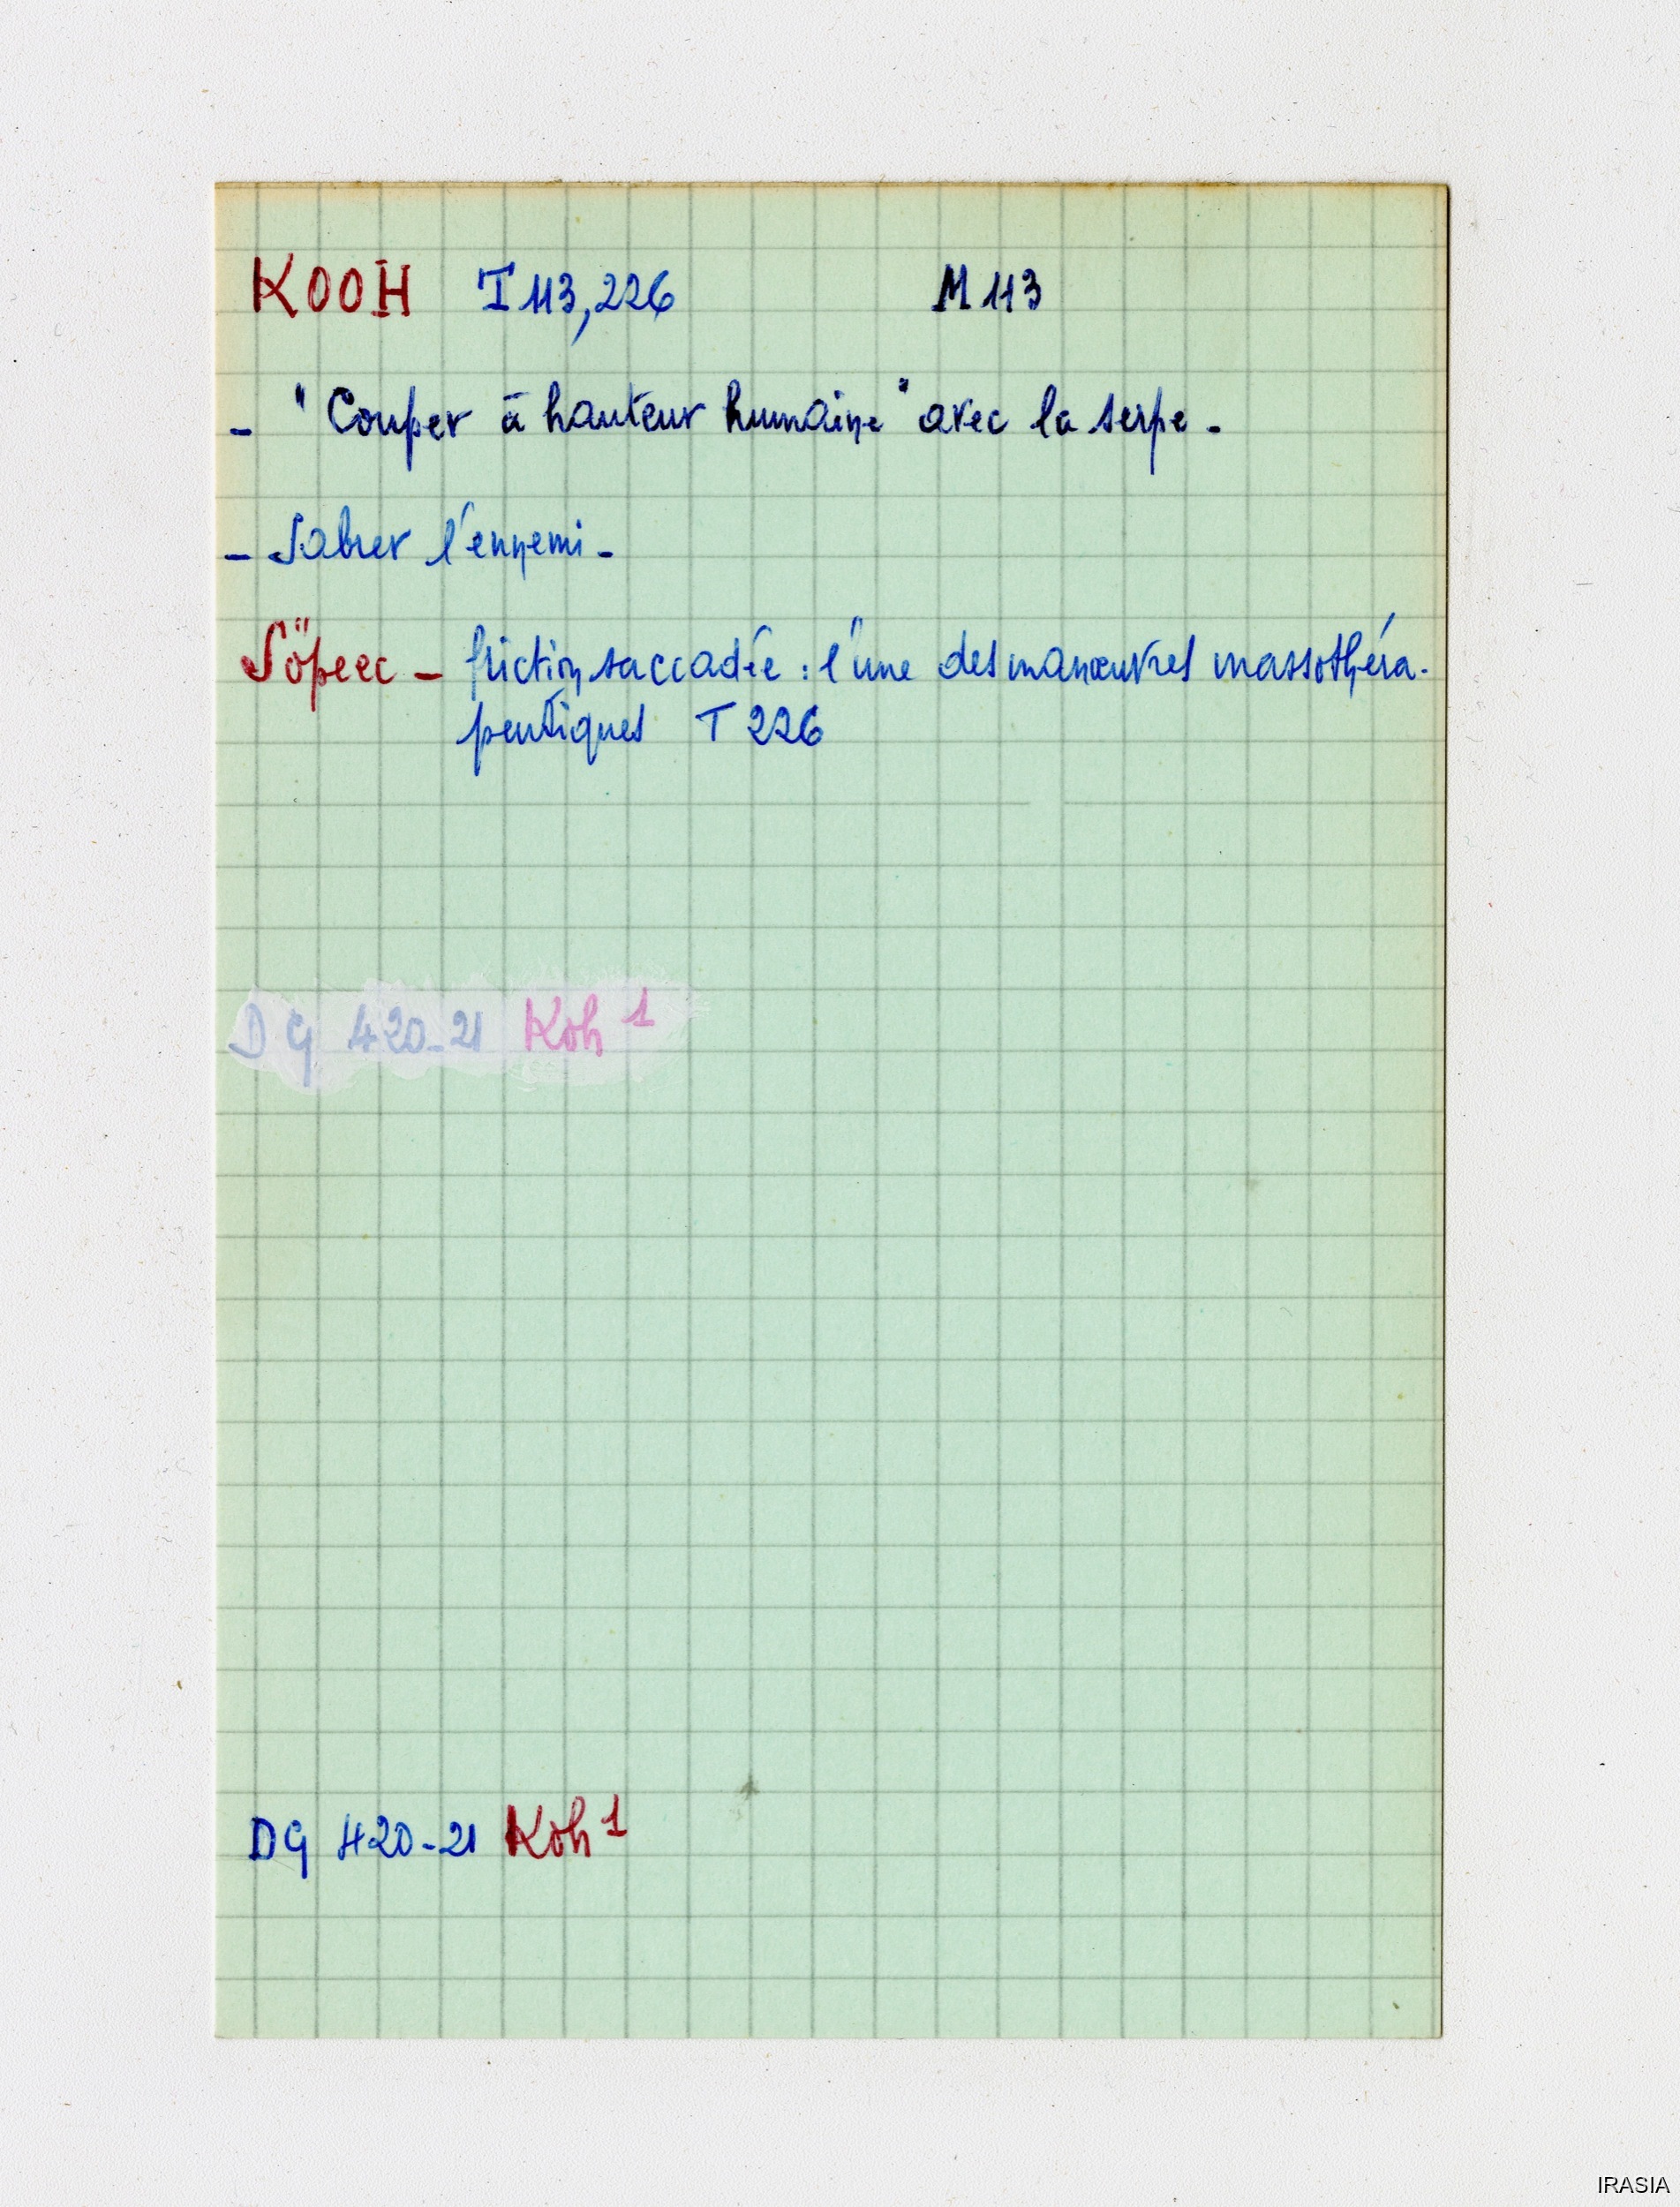 KOOH T 113, 226 M 113
- "Couper à hauteur humaine" avec la serpe -
- Sabrer l'ennemi -
Söpeec - friction saccadée : l'une des manœuvres massothéra-
peutiques T 226
DG 420-21 Koh 1
DG 420-21 Koh 1
IRASIA